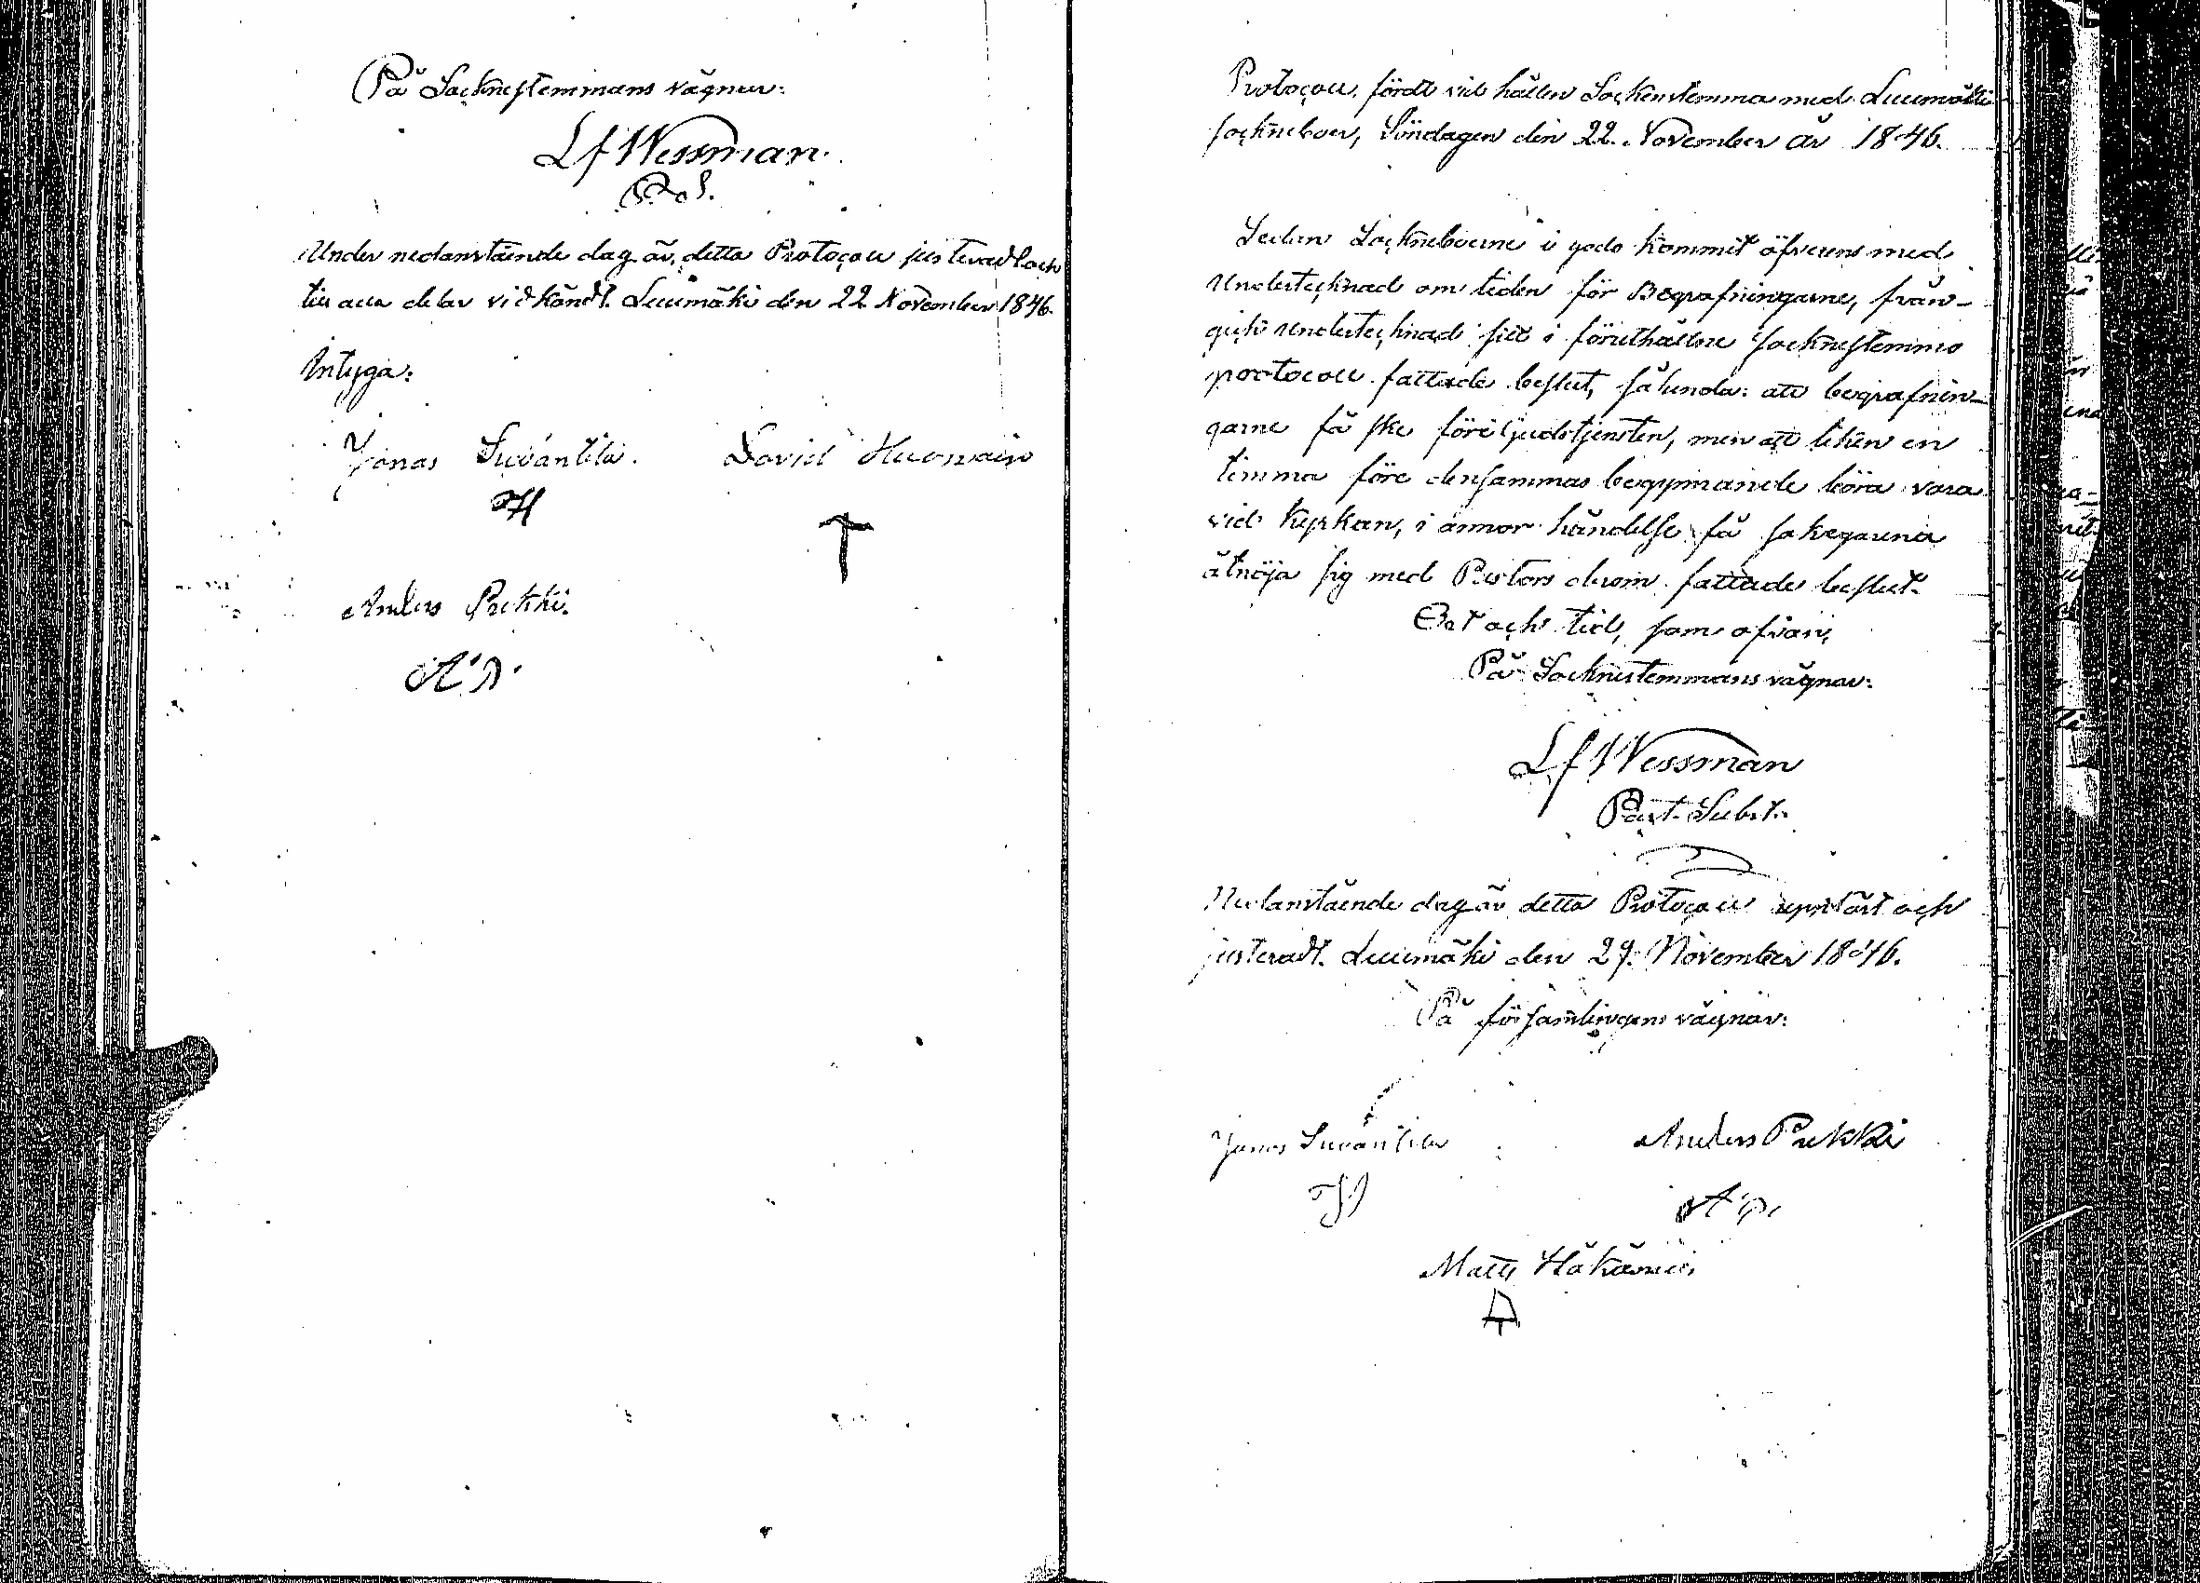 På Socknestemmans vägnar:
L f Wessman
P. S.
Under nedanstående dag är detta Protocoll justeradt och
till alla delar vidkändt. Luumäki den 22 November 1846.
Intyga:
Jonas Suoánttila. David Huomain
Anders Pukki.
A. P.
Protocoll, fördt vid hållen Sockenstemma med Luumäki
sockneboer, Söndagen den 22. November år 1846.
Sedan Sockneboerne i godo kommit öfverens med
Undertecknad om tiden för Begrafningarne, från-
gick undertecknad sitt i förut hållne socknestemmo
protocoll fattade beslut, sålunda: att begrafnin-
garne få ske före Gudstjensten, men att liken en
timma före densammas begynnande böra vara
vid kyrkan, i annor händelse få sakegarena
åtnöja sig med Pastors derom fattade beslut.
Ort och tid, som ofvan,
På Socknestemmans vägnar:
L f Wessman
Past. Subst.
Nedanstående dag är detta Protocoll uppläst och
justeradt. Luumäki den 29. November 1846.
På församlingens vägnar:
Jonas Suoánttila Anders Pukki
A. P.
Matts